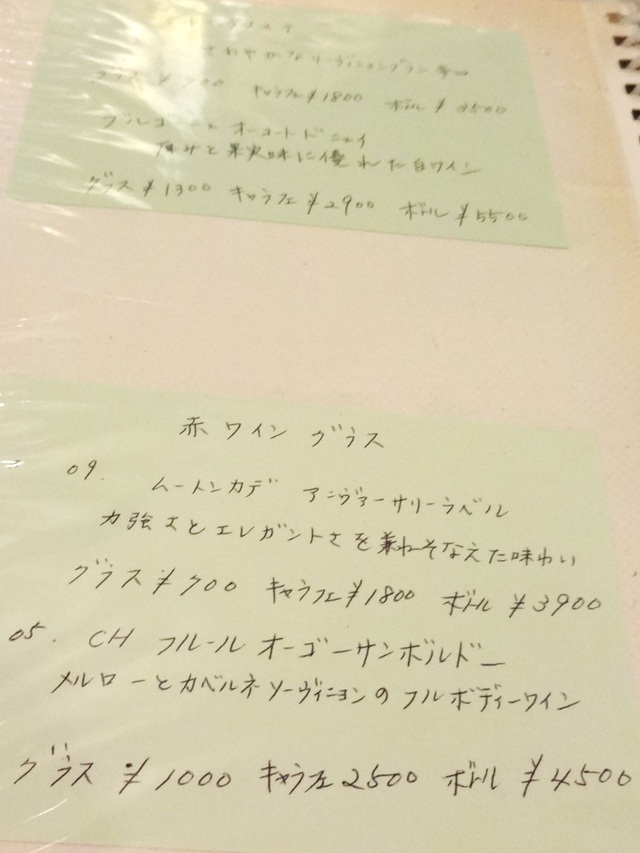 さわやかなソーヴィニョンブラン
グラス ¥700 キャラフェ¥1800 ボトル ¥3500
ブルゴーニュ オーコートドニュイ
厚みと果実味に優れた白ワイン
グラス ¥1300 キャラフェ¥2900 ボトル ¥5500
赤ワイン グラス
09. ムートンカデ アニヴァーサリーラベル
力強さとエレガントさを兼ねそなえた味わい
グラス ¥700 キャラフェ¥1800 ボトル ¥3900
05. CH フルール オーゴーサンボルドー
メルローとカベルネソーヴィニョンのフルボディーワイン
グラス ¥1000 キャラフェ2500 ボトル ¥4500